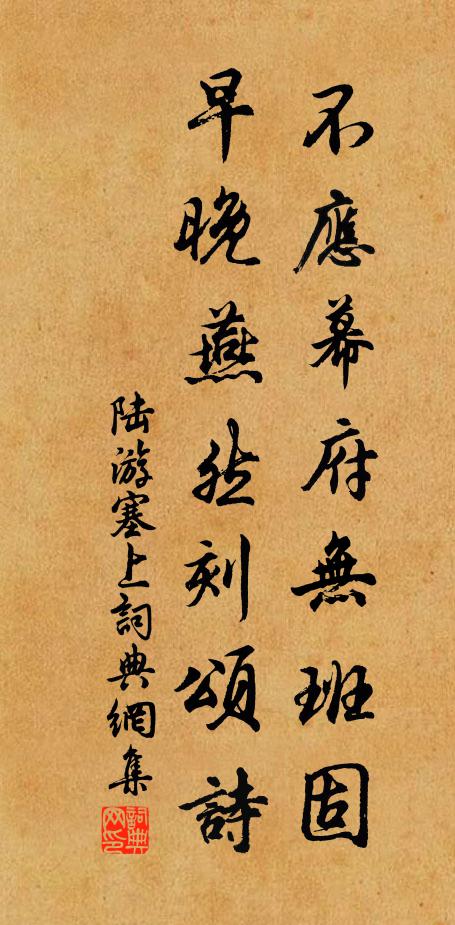 不應幕府無班固
早晚燕然刻頌詩
陆游塞上詞典網集
詞典網印